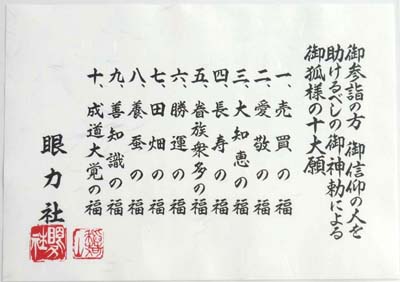 御参詣の方 御信仰の人を
助けるべしの御神勅による
御狐様の十大願
一、売買の福
二、愛敬の福
三、大知恵の福
四、長寿の福
五、眷族衆多の福
六、勝運の福
七、田畑の福
八、養蚕の福
九、善知識の福
十、成道大覚の福
眼力社